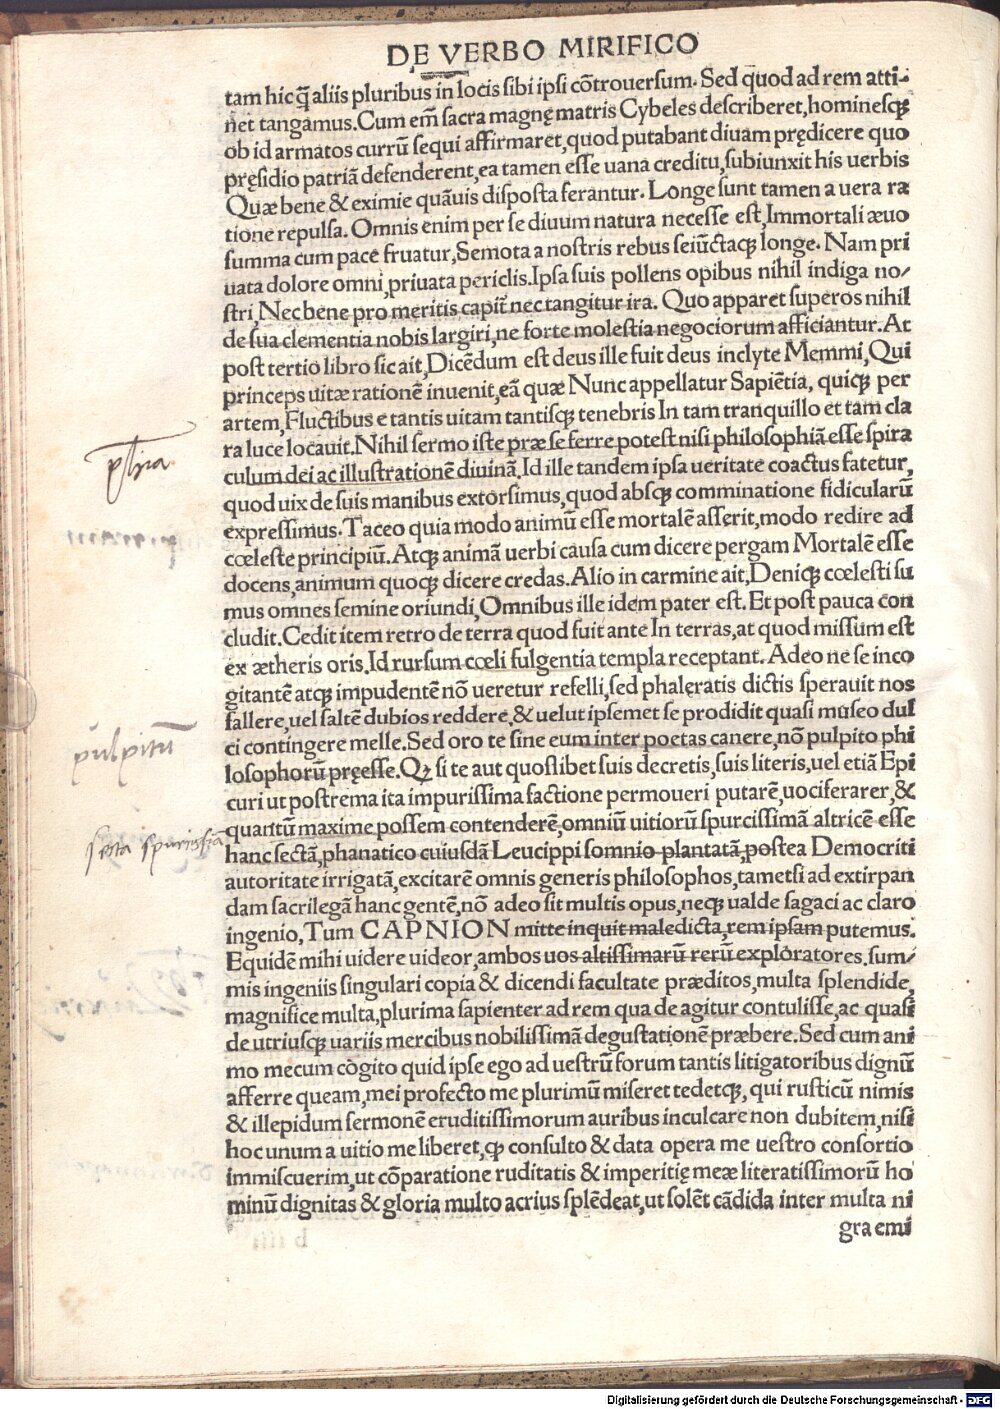 DE VERBO MIRIFICO
tam hic q̃ aliis pluribus in locis sibi ipsi cõtrouersum. Sed quod ad rem atti-
net tangamus. Cum em̃ sacra magnę matris Cybeles describeret, hominesq;
ob id armatos currũ sequi affirmaret, quod putabant diuam prędicere quo
pręsidio patriã defenderent, ea tamen esse uana creditu, subiunxit his uerbis
Quæ bene & eximie quãuis disposta ferantur. Longe sunt tamen a uera ra
tione repulsa. Omnis enim per se diuum natura necesse est, Immortali æuo
summa cum pace fruatur, Semota a nostris rebus seiũctaq; longe. Nam pri
uata dolore omni, priuata periclis. Ipsa suis pollens opibus nihil indiga no/
stri, Nec bene pro meritis capit̃ nec tangitur ira. Quo apparet superos nihil
de sua clementia nobis largiri, ne forte molestia negociorum afficiantur. At
post tertio libro sic ait, Dicẽdum est deus ille fuit deus inclyte Memmi, Qui
princeps uitæ rationẽ inuenit, eã quæ Nunc appellatur Sapiẽtia, quiq; per
artem, Fluctibus e tantis uitam tantisq; tenebris In tam tranquillo et tam cla
ra luce locauit. Nihil sermo iste præ se ferre potest nisi philosophiã esse spira
culum dei ac illustrationẽ diuinã. Id ille tandem ipsa ueritate coactus fatetur,
quod uix de suis manibus extorsimus, quod absq; comminatione fidicularũ
expressimus. Taceo quia modo animũ esse mortalẽ asserit, modo redire ad
cœleste principiũ. Atq; animã uerbi causa cum dicere pergam Mortalẽ esse
docens, animum quoq; dicere credas. Alio in carmine ait, Deniq; cœlesti su
mus omnes semine oriundi, Omnibus ille idem pater est. Et post pauca con
cludit. Cedit item retro de terra quod fuit ante In terras, at quod missum est
ex ætheris oris, Id rursum cœli fulgentia templa receptant. Adeo ne se inco
gitantẽ atq; impudentẽ nõ ueretur refelli, sed phalęratis dictis sperauit nos
fallere, uel saltẽ dubios reddere, & uelut ipsemet se prodidit quasi museo dul
ci contingere melle. Sed oro te sine eum inter poetas canere, nõ pulpito phi
losophorũ pręesse. Qz si te aut quoslibet suis decretis, suis literis, uel etiã Epi
curi ut postrema ita impurissima factione permoueri putarẽ, uociferarer, &
quantũ maxime possem contenderẽ, omniũ uitiorũ spurcissimã altricẽ esse
hanc sectã, phanatico cuiusdã Leucippi somnio plantatã, postea Democriti
autoritate irrigatã, excitarẽ omnis generis philosophos, tametsi ad extirpan
dam sacrilegã hanc gentẽ, nõ adeo sit multis opus, neq; ualde sagaci ac claro
ingenio, Tum CAPNION mitte inquit maledicta, rem ipsam putemus.
Equidẽ mihi uidere uideor, ambos uos altissimarũ rerũ exploratores, sum/
mis ingeniis singulari copia & dicendi facultate præditos, multa splendide,
magnifice multa, plurima sapienter ad rem qua de agitur contulisse, ac quasi
de utriusq; uariis mercibus nobilissimã degustationẽ præbere. Sed cum ani
mo mecum cõgito quid ipse ego ad uestrũ forum tantis litigatoribus dignũ
afferre queam, mei profecto me plurimũ miseret tedetq;, qui rusticũ nimis
& illepidum sermonẽ eruditissimorum auribus inculcare non dubitem, nisi
hoc unum a uitio me liberet, q; consulto & data opera me uestro consortio
immiscuerim, ut cõparatione ruditatis & imperitię meæ literatissimorũ ho
minũ dignitas & gloria multo acrius splẽdeat, ut solẽt cãdida inter multa ni
gra emi
pulpitũ
Digitalisierung gefördert durch die Deutsche Forschungsgemeinschaft - DFG